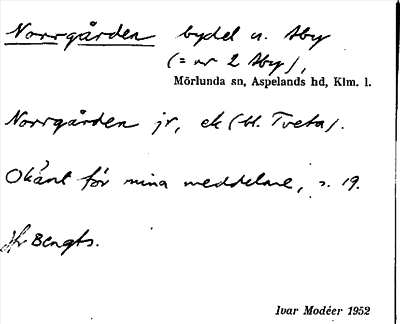 Norrgården bydel u. Åby
(= nr 2 Åby),
Mörlunda sn, Aspelands hd, Klm. l.
Norrgården jr, ek (bl. Tveta).
Okänt för mina meddelare, s. 19.
Bengts.
Ivar Modéer 1952